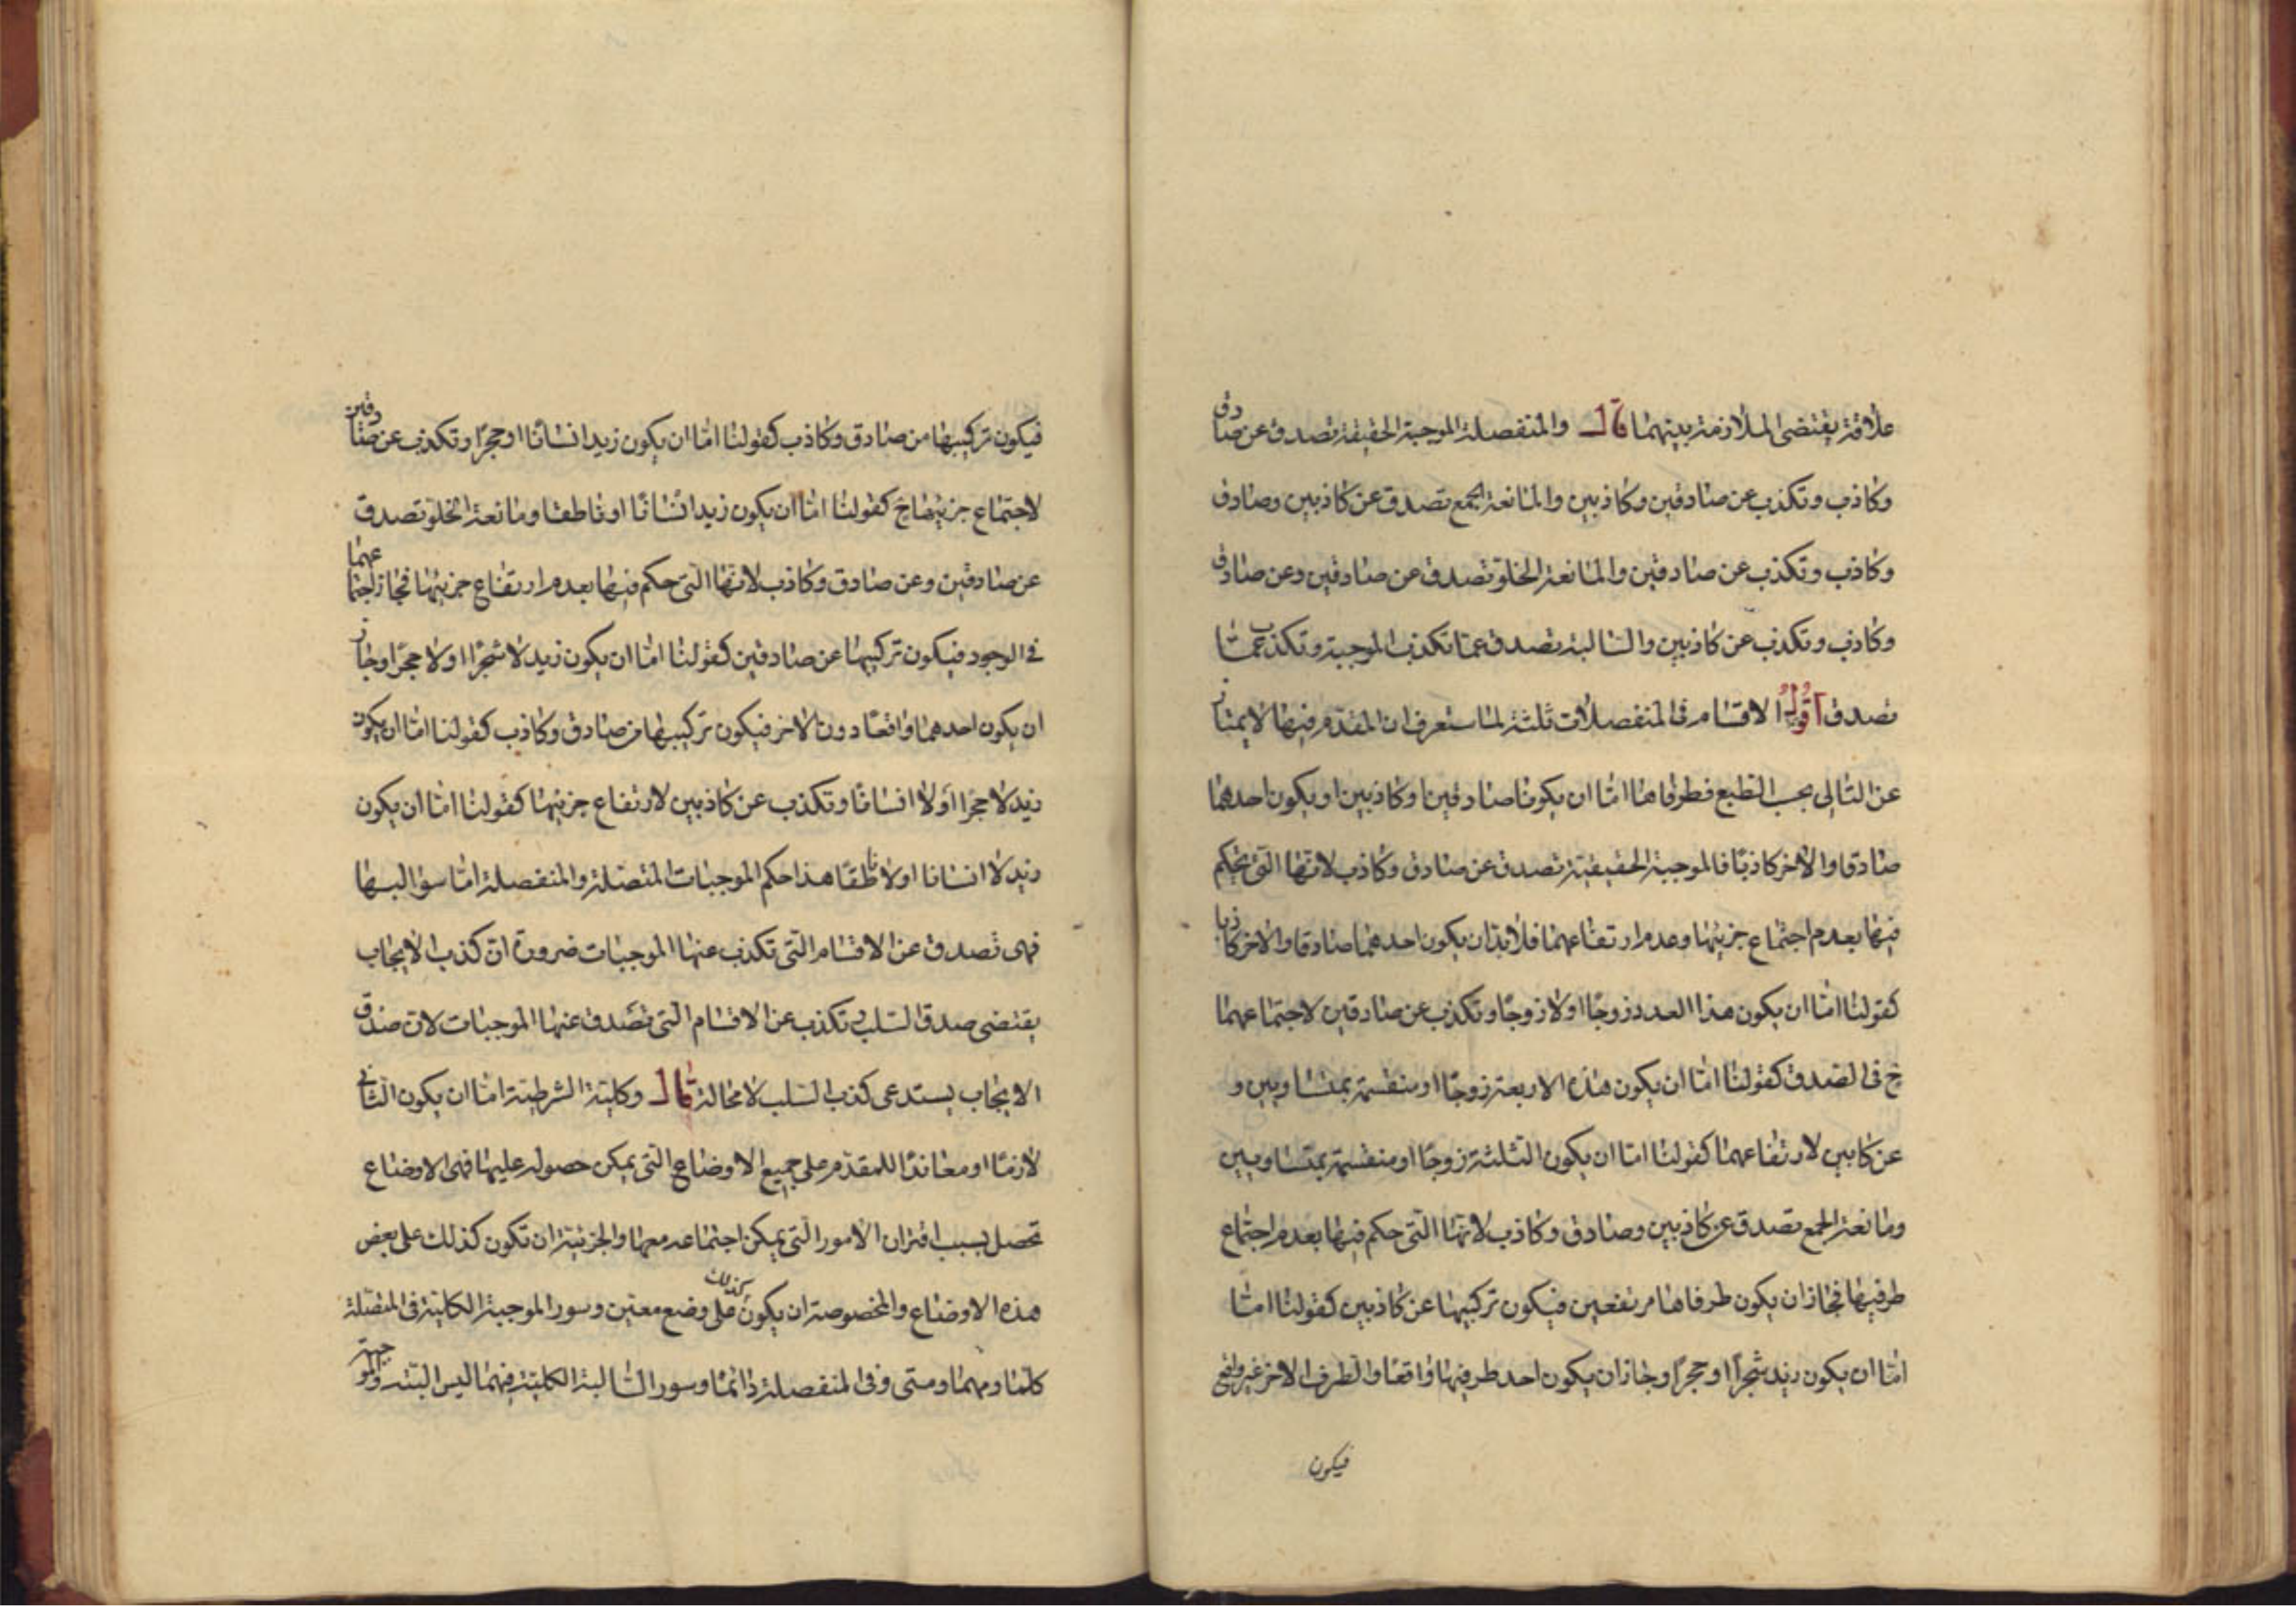 علاقة يقتضى الملازمة بينهما قال والمنفصلة الموجبة الحقيقة تصدق عن صادق
وكاذب وتكذب عن صادقين وكاذبين والمانعة الجمع تصدق عن كاذبين وصادق
وكاذب وتكذب عن صادقين والمانعة الخلو تصدق عن صادقين وعن صادق
وكاذب وتكذب عن كاذبين والسالبة تصدق عما تكذب الموجبة وتكذب عما
تصدق اقول الاقسام فى المنفصلات ثلثة لما ستعرف ان المقدم فيها لا يمتاز
عن التالى بحسب الطبع فطرفاها اما ان يكونا صادقين او كاذبين او يكون احدهما
صادقا والاخر كاذبا فالموجبة الحقيقية تصدق عن صادق وكاذب لانها التى يحكم
فيها بعدم اجتماع جزئيها وعدم ارتفاعهما فلا بد ان يكون احدهما صادقا والاخر كاذبا
كقولنا اما ان يكون هذا العدد زوجا او لا زوجا وتكذب عن صادقين لاجتماعهما
ح فى الصدق كقولنا اما ان يكون هذه الاربعة زوجا او منقسمة بمتساويين و
عن كابين لارتفاعهما كقولنا اما ان يكون الثلثة زوجا او منقسمة بمتساويين
ومانعة الجمع تصدق عن كاذبين وصادق وكاذب لانها التى حكم فيها بعدم اجتماع
طرفيها فجاز ان يكون طرفاها مرتفعين فيكون تركيبها عن كاذبين كقولنا اما
اما ان يكون زيد شجرا او حجرا وجاز ان يكون احد طرفيها واقعا والطرف الاخر غير واقع
فيكون
فيكون تركيبها من صادق وكاذب كقولنا اما ان يكون زيد انسانا او حجرا وتكذب عن صادقين
لاجتماع جزئيها ح كقولنا اما ان يكون زيد انسانا او ناطقا ومانعة الخلو تصدق
عن صادقين وعن صادق وكاذب لانها التى حكم فيها بعدم ارتفاع جزئيها فجاز اجتماعهما
فى الوجود فيكون تركيبها عن صادقين كقولنا اما ان يكون زيد لا شجرا او لا حجرا وجاز
ان يكون احدهما واقعا دون الاخر فيكون تركيبها من صادق وكاذب كقولنا اما ان يكون
زيد لا حجرا او لا انسانا وتكذب عن كاذبين لارتفاع جزئيها كقولنا اما ان يكون
زيد لا انسانا او لا ناطقا هذا حكم الموجبات المتصلة والمنفصلة اما سوالبها
فهى تصدق عن الاقسام التى تكذب عنها الموجبات ضرورة ان كذب الايجاب
يقتضى صدق السلب تكذب عن الاقسام التى تصدق عنها الموجبات لان صدق
الايجاب يستدعى كذب السلب لا محالة قال وكلية الشرطية اما ان يكون التالى
لازما او معاندا للمقدم على جميع الاوضاع التى يمكن حصوله عليها فهى الاوضاع
تحصل بسبب اقتران الامور التى يمكن اجتماعه معها والجزئية ان تكون كذلك على بعض
هذه الاوضاع والمخصوصة ان يكون كذلك على وضع معين وسور الموجبة الكلية فى المتصلة
كلما ومهما ومتى وفى المنفصلة دائما وسور السالبة الكلية فيهما ليس البتة والموجبة